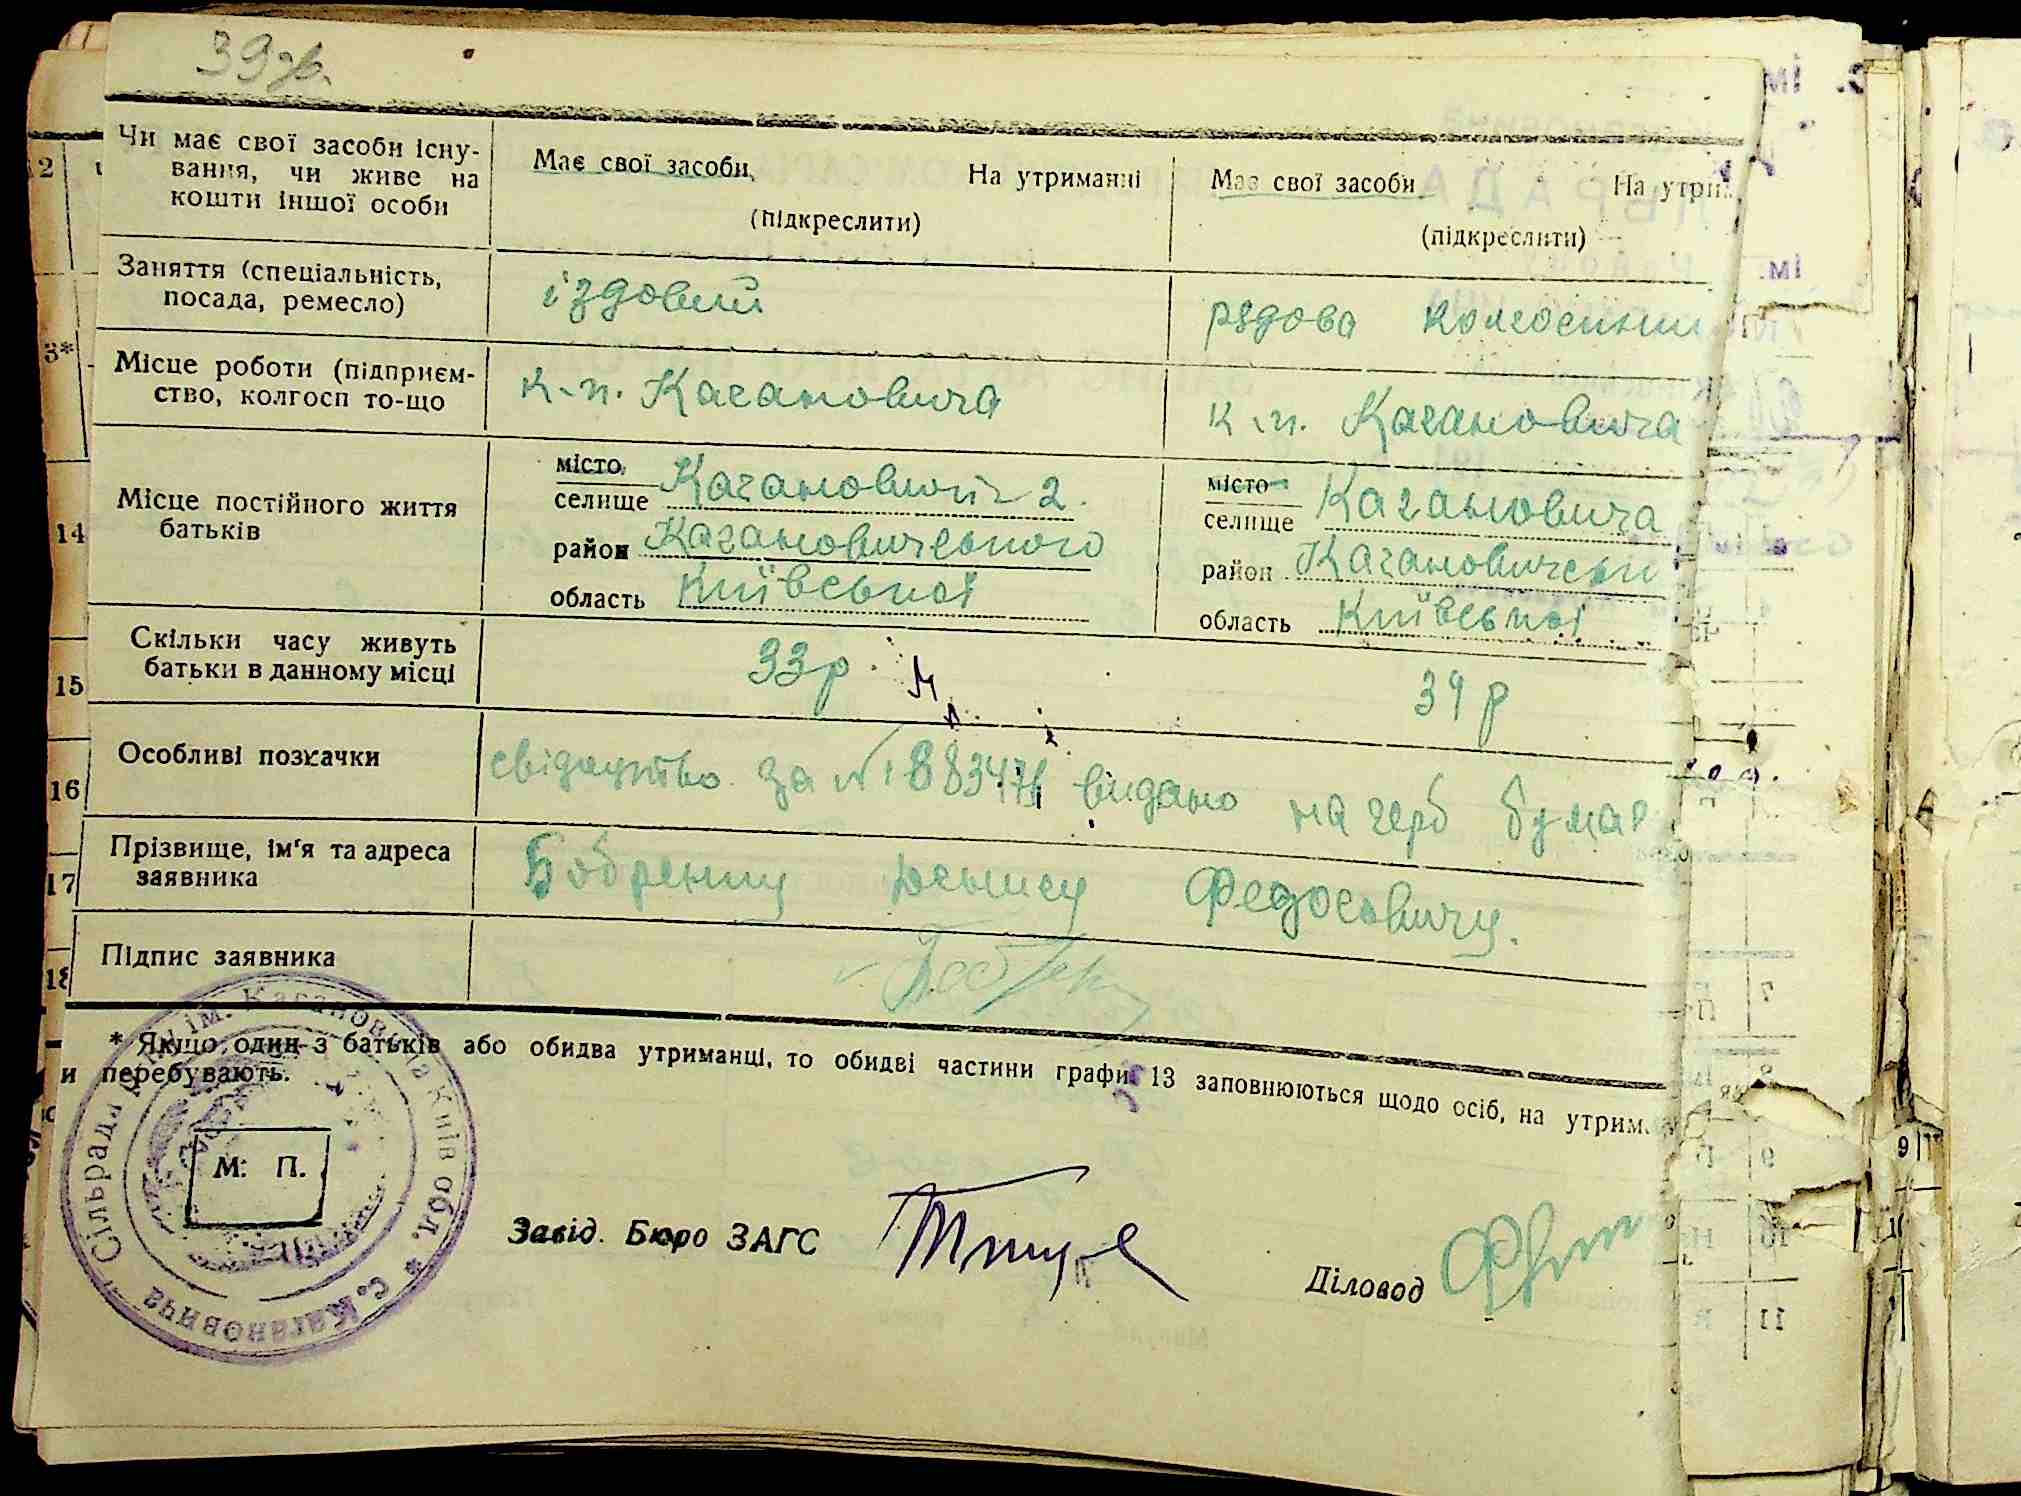 39 зв.
Чи має свої засоби існу-
вання, чи живе на
кошти іншої особи
Має свої засоби, На утриманні
(підкреслити)
Має свої засоби На утрим
(підкреслити)
Заняття (спеціальність,
посада, ремесло)
їздовий
рядова колгоспни
Місце роботи (підприєм-
ство, колгосп то-що
к-п. Кагановича
к-п. Кагановича
14
Місце постійного життя
батьків
місто
селище Кагановичи 2.
район Кагановичського
область Київської
місто
селище Кагановича
район Кагановичськи
область Київської
15
Скільки часу живуть
батьки в данному місці
33 р.
39 р
16
Особливі позначки
свідоцтво за № 883476 видано на герб бумаг
17
Прізвище, ім'я та адреса
заявника
Бобренку Федосовичу.
18
Підпис заявника
* Якщо один з батьків або обидва утриманці, то обидві частини графи 13 заповнюються щодо осіб, на утрим
и перебувають.
М. П.
Сільрада ім. Кагановича Київ обл. * с. Кагановича
Завід. Бюро ЗАГС
Діловод